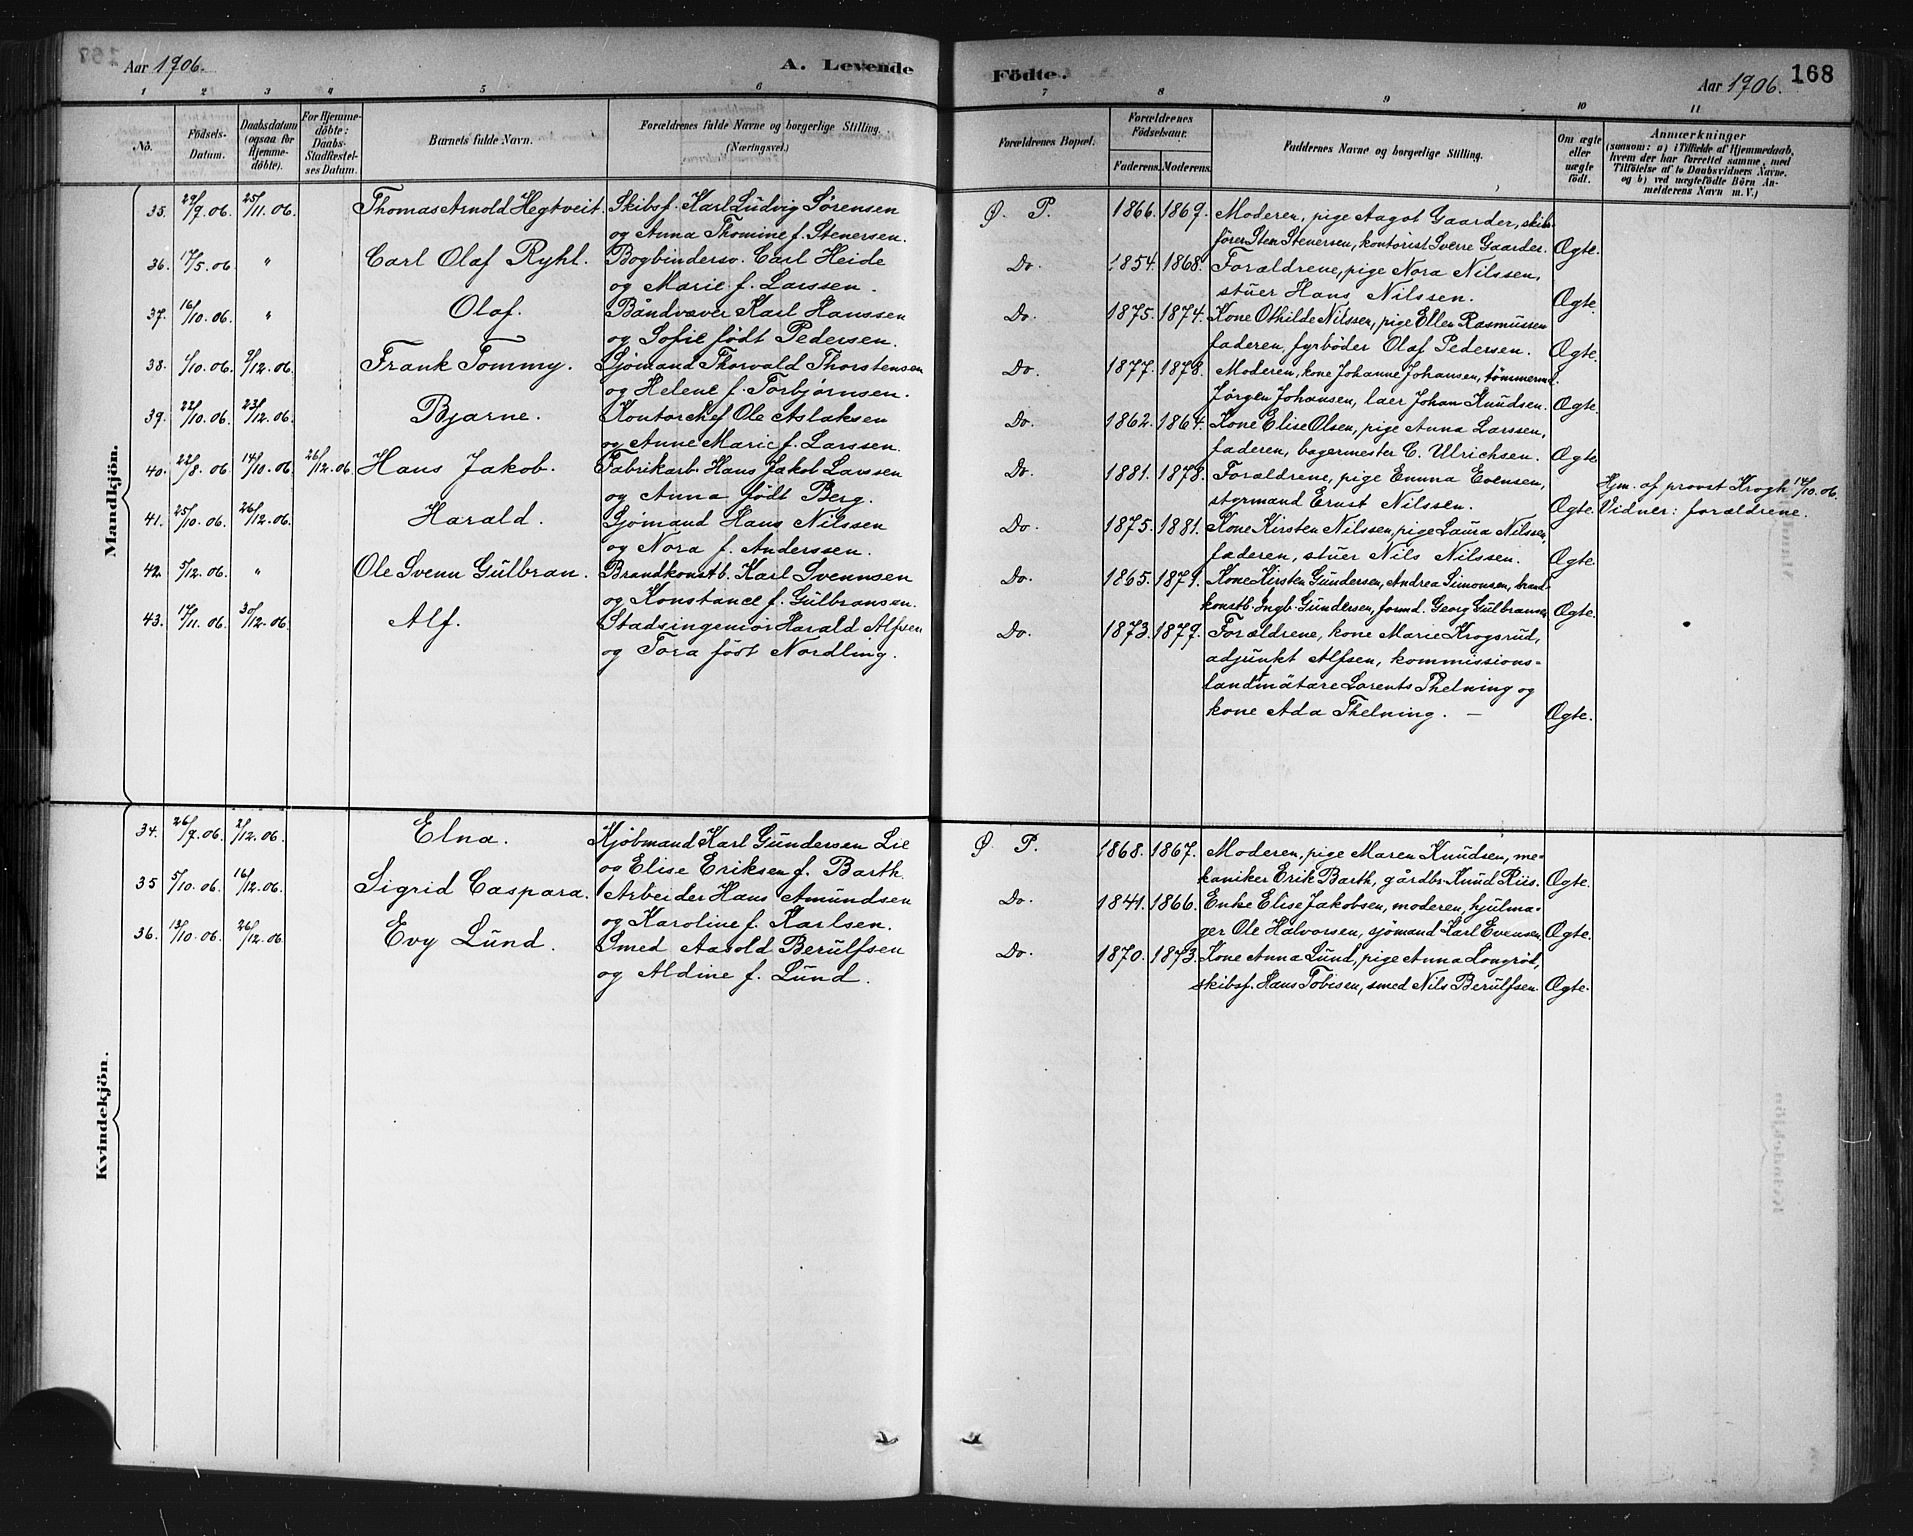 Aar 1906.
A. Levende
Födte.
Aar 1906.
168
1 2 3 4 5 6 7 8 9 10 11
No.
Födsels-
Datum.
Daabsdatum
(ogsaa for
Hjemme-
döbte).
For Hjemme-
döbte:
Daabs-
Stadfæstel-
ses Datum.
Barnets fulde Navn.
Forældrenes fulde Navne og borgerlige Stilling.
(Næringsvei.)
Forældrenes Bopæl.
Forældrenes
Födselsaar.
Faderens. Moderens.
Faddernes Navne og borgerlige Stilling.
Om ægte
eller
uægte
födt.
Anmærkninger
(saasom: a) i Tilfælde af Hjemmedaab,
hvem der har forrettet samme, med
Tilföielse af to Daabsvidners Navne.
og b) ved uægtefödte Börn An-
melderens Navn m. V.)
Mandkjön.
35. 29/9.06. 25/11.06. Thomas Arnold Hegtveit. Skibsf. Karl Ludvig Sørensen
og Anna Thomine f. Stenersen.
Ø. P. 1866. 1869. Moderen, pige Aagot Gaarder, skibs
fører Sten Stenersen, kontorist Sverre Gaarder. Ægte.
36. 17/5.06. " Carl Olaf Ryhl. Bogbindersv. Carl Heide
og Marie f. Larssen.
Do. 1854. 1868. Forældrene, pige Nora Nilssen,
stuer Hans Nilssen. Ægte.
37. 16/10.06. " Olaf. Båndvæver Karl Hanssen
og Sofie født Pedersen.
Do. 1875. 1874. Kone Othilde Nilssen, pige Ellen Rasmussen
faderen, fyrbøder Olaf Pedersen. Ægte.
38. 1/10.06. 9/12.06. Frank Tommy. Sjømand Thorvald Thorstensen
og Helene f. Torbjørnsen.
Do. 1877. 1878. Moderen, kone Johanne Johansen, tømmermd.
Jørgen Johansen, laer Johan Knudsen. Ægte.
39. 22/10.06. 23/12.06. Bjarne. Kontorchef Ole Aslaksen
og Anne Marie f. Larssen.
Do. 1862. 1864. Kone Elise Olsen, pige Anna Larssen,
faderen, bagermester C. Ulrichsen. Ægte
40. 22/8.06. 14/10.06 26/12.06. Hans Jakob. Fabrikarb. Hans Jakob Larssen
og Anna født Berg.
Do. 1881. 1878. Forældrene, pige Emma Evensen,
styrmand Ernst Nilssen. Ægte.
Hjm. af provst Krogh 14/10.06.
Vidner: forældrene.
41. 25/10.06. 26/12.06. Harald. Sjømand Hans Nilssen
og Nora f. Anderssen.
Do. 1875. 1881. Kone Kirsten Nilssen, pige Laura Nilssen,
faderen, stuer Nils Nilssen. Ægte.
42. 5/12.06. " Ole Svenn Gulbran. Brandkonstb. Karl Svennsen
og Konstance f. Gulbransen.
Do. 1865. 1871. Kone Kirsten Gundersen, Andrea Simonsen, brand
konstb. Ingb. Gundersen, formd. Georg Gulbransen Ægte.
43. 17/11.06. 30/12.06. Alf. Stadsingeniør Harald Alfsen
og Tora født Nordling.
Do. 1873. 1879. Forældrene, kone Marie Krogsrud,
adjunkt Alfsen, kommissions-
landtmätare Lorents Thelning og
kone Ada Thelning. — Ægte.
Kvindekjön.
34. 26/7.06. 2/12.06. Elna. Kjøbmand Karl Gundersen Lie
og Elise Eriksen f. Barth.
Ø. P. 1868. 1867. Moderen, pige Maren Knudsen, me-
kaniker Erik Barth, gårdbr. Knud Riis. Ægte.
35 5/10.06. 16/12.06. Sigrid Caspara. Arbeider Hans Amundsen
og Karoline f. Karlsen.
Do. 1841. 1866. Enke Elise Jakobsen, moderen, hjulma-
ger Ole Halvorsen, sjømand Karl Evensen. Ægte.
36. 13/10.06. 26/12.06. Evy Lund. Smed Aasold Berulfsen
og Aldine f. Lund.
Do. 1870. 1873. Kone Anna Lund, pige Anna Longrød,
skibsf. Hans Tobisen, smed Nils Berulfsen. Ægte.